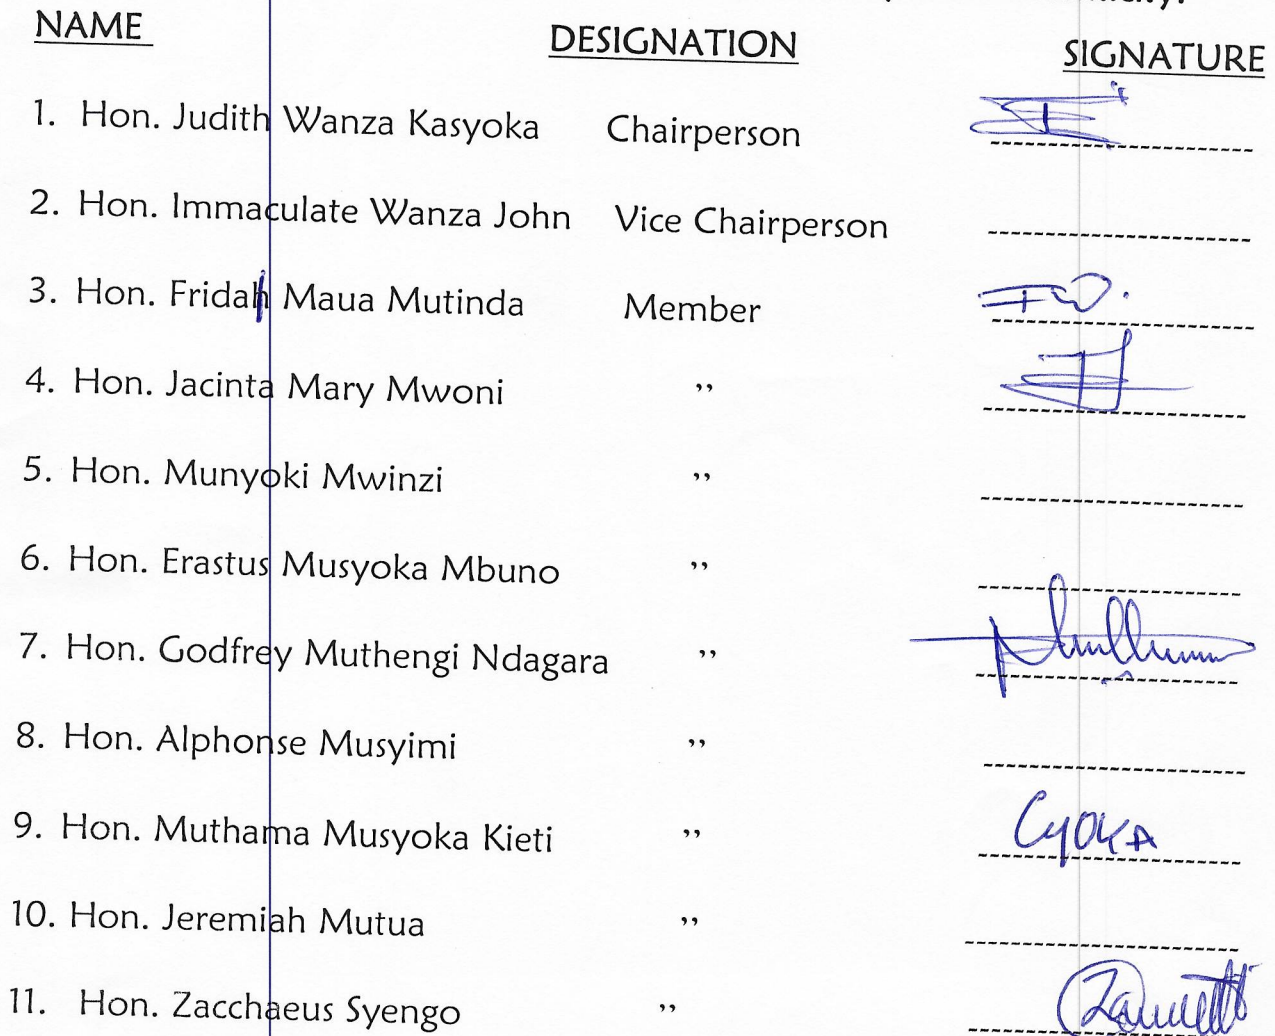 NAME DESIGNATION SIGNATURE
1. Hon. Judith Wanza Kasyoka Chairperson
2. Hon. Immaculate Wanza John Vice Chairperson
3. Hon. Fridah Maua Mutinda Member
4. Hon. Jacinta Mary Mwoni ,,
5. Hon. Munyoki Mwinzi ,,
6. Hon. Erastus Musyoka Mbuno ,,
7. Hon. Godfrey Muthengi Ndagara ,,
8. Hon. Alphonse Musyimi ,,
9. Hon. Muthama Musyoka Kieti ,, Cyoka
10. Hon. Jeremiah Mutua ,,
11. Hon. Zacchaeus Syengo ,,